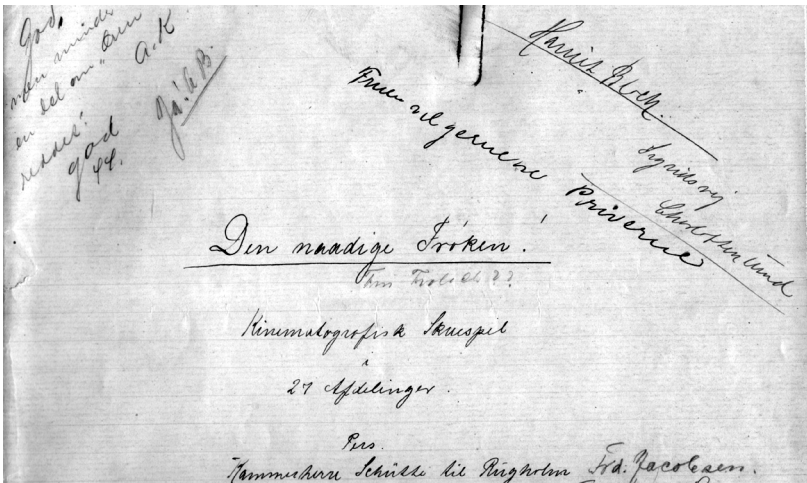 God,
men minder
en del om "Den
reddes".
A.K
god
Ja! AB.
Harriet Bloch.
Sigridsvej
Charlottenlund
Fruen vil gerne
Den naadige Frøken!
Kinematografisk Skuespil
i
27 Afdelinger.
Pers.
Kammerherre Schütte til Ringholm Frd. Jacobsen.